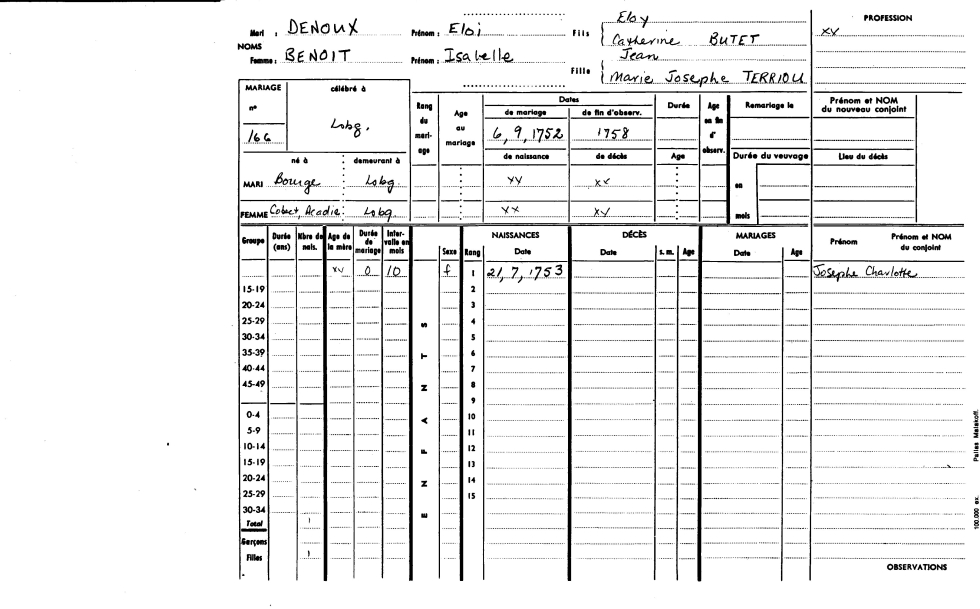 Mari : DENOUX Prénom : Eloi Fils Eloy
Catherine BUTET
NOMS
Femme : BENOIT Prénom : Isabelle Fille Jean
Marie Josephe TERRIOU
PROFESSION
xx
MARIAGE célébré à
n°
166 Lobg.
né à demeurant à
MARI Bourge Lobg.
FEMME Cobect, Acadie Lobg.
Rang du mariage Age au mariage
Dates
de mariage de fin d'observ.
6, 9, 1752 1758
de naissance de décès
xx xx
xx xx
Durée Age en fin d'observ.
Age
Remariage le
Durée du veuvage
en
mois
Prénom et NOM
du nouveau conjoint
Lieu du décès
Groupe Durée (ans) Nbre de nais. Age de la mère Durée de mariage Intervalle en mois ENFANTS Sexe Rang NAISSANCES Date DÉCÈS Date s. m. Age MARIAGES Date Age Prénom Prénom et NOM du conjoint
xx 0 10 f 1 21, 7, 1753 Josephe Charlotte
15-19 2
20-24 3
25-29 4
30-34 5
35-39 6
40-44 7
45-49 8
9
0-4 10
5-9 11
10-14 12
15-19 13
20-24 14
25-29 15
30-34
Total 1
Garçons
Filles 1
OBSERVATIONS
100.000 ex. Pallas Malakoff.